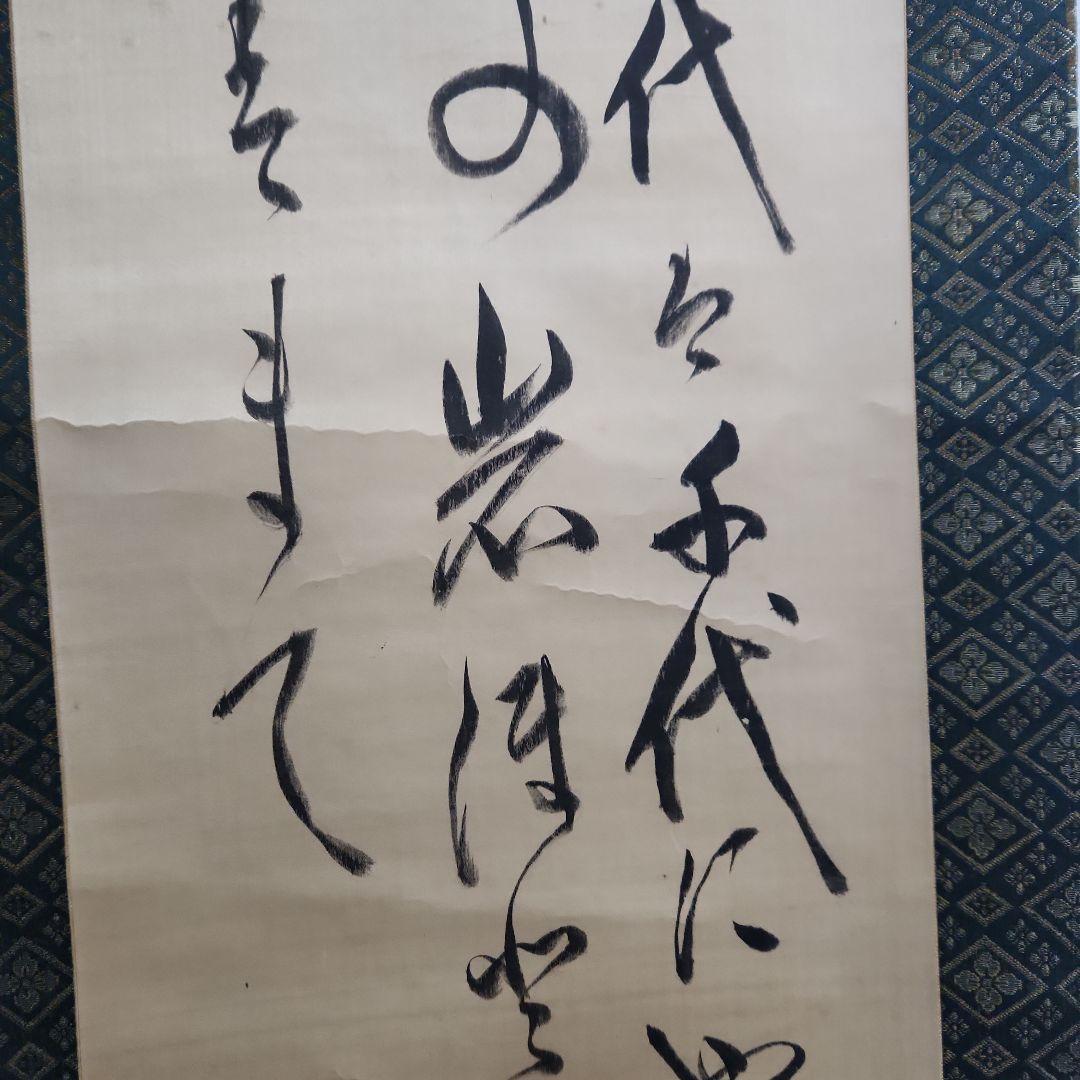 代は千代に や
の岩ほと
すまて